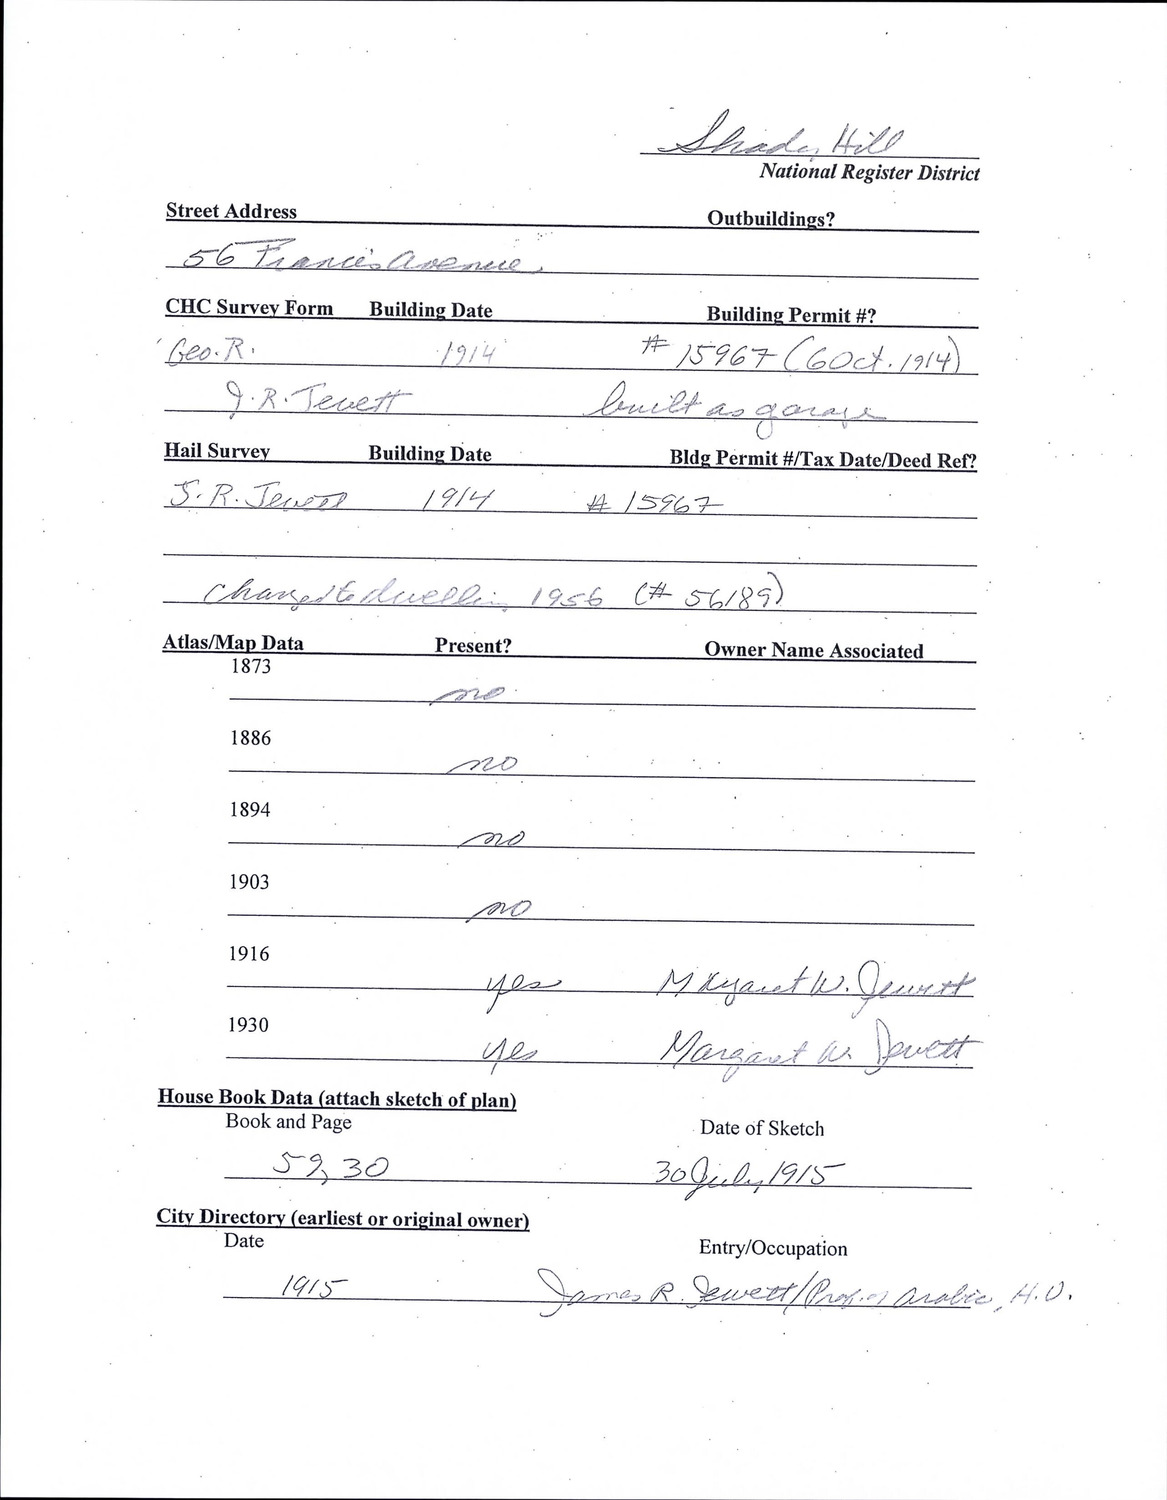 Shady Hill
National Register District
Street Address Outbuildings?
56 Francis Avenue
CHC Survey Form Building Date Building Permit #?
Geo. R. 1914 # 15967 (6 Oct. 1914)
J. R. Jewett built as garage
Hail Survey Building Date Bldg Permit #/Tax Date/Deed Ref?
J. R. Jewett 1914 # 15967
changed to dwelling 1956 (# 56189)
Atlas/Map Data Present? Owner Name Associated
1873
no
1886
no
1894
no
1903
no
1916
yes Margaret W. Jewett
1930
yes Margaret W. Jewett
House Book Data (attach sketch of plan)
Book and Page Date of Sketch
59, 30 30 July, 1915
City Directory (earliest or original owner)
Date Entry/Occupation
1915 James R. Jewett/Prof. of Arabic, H.U.